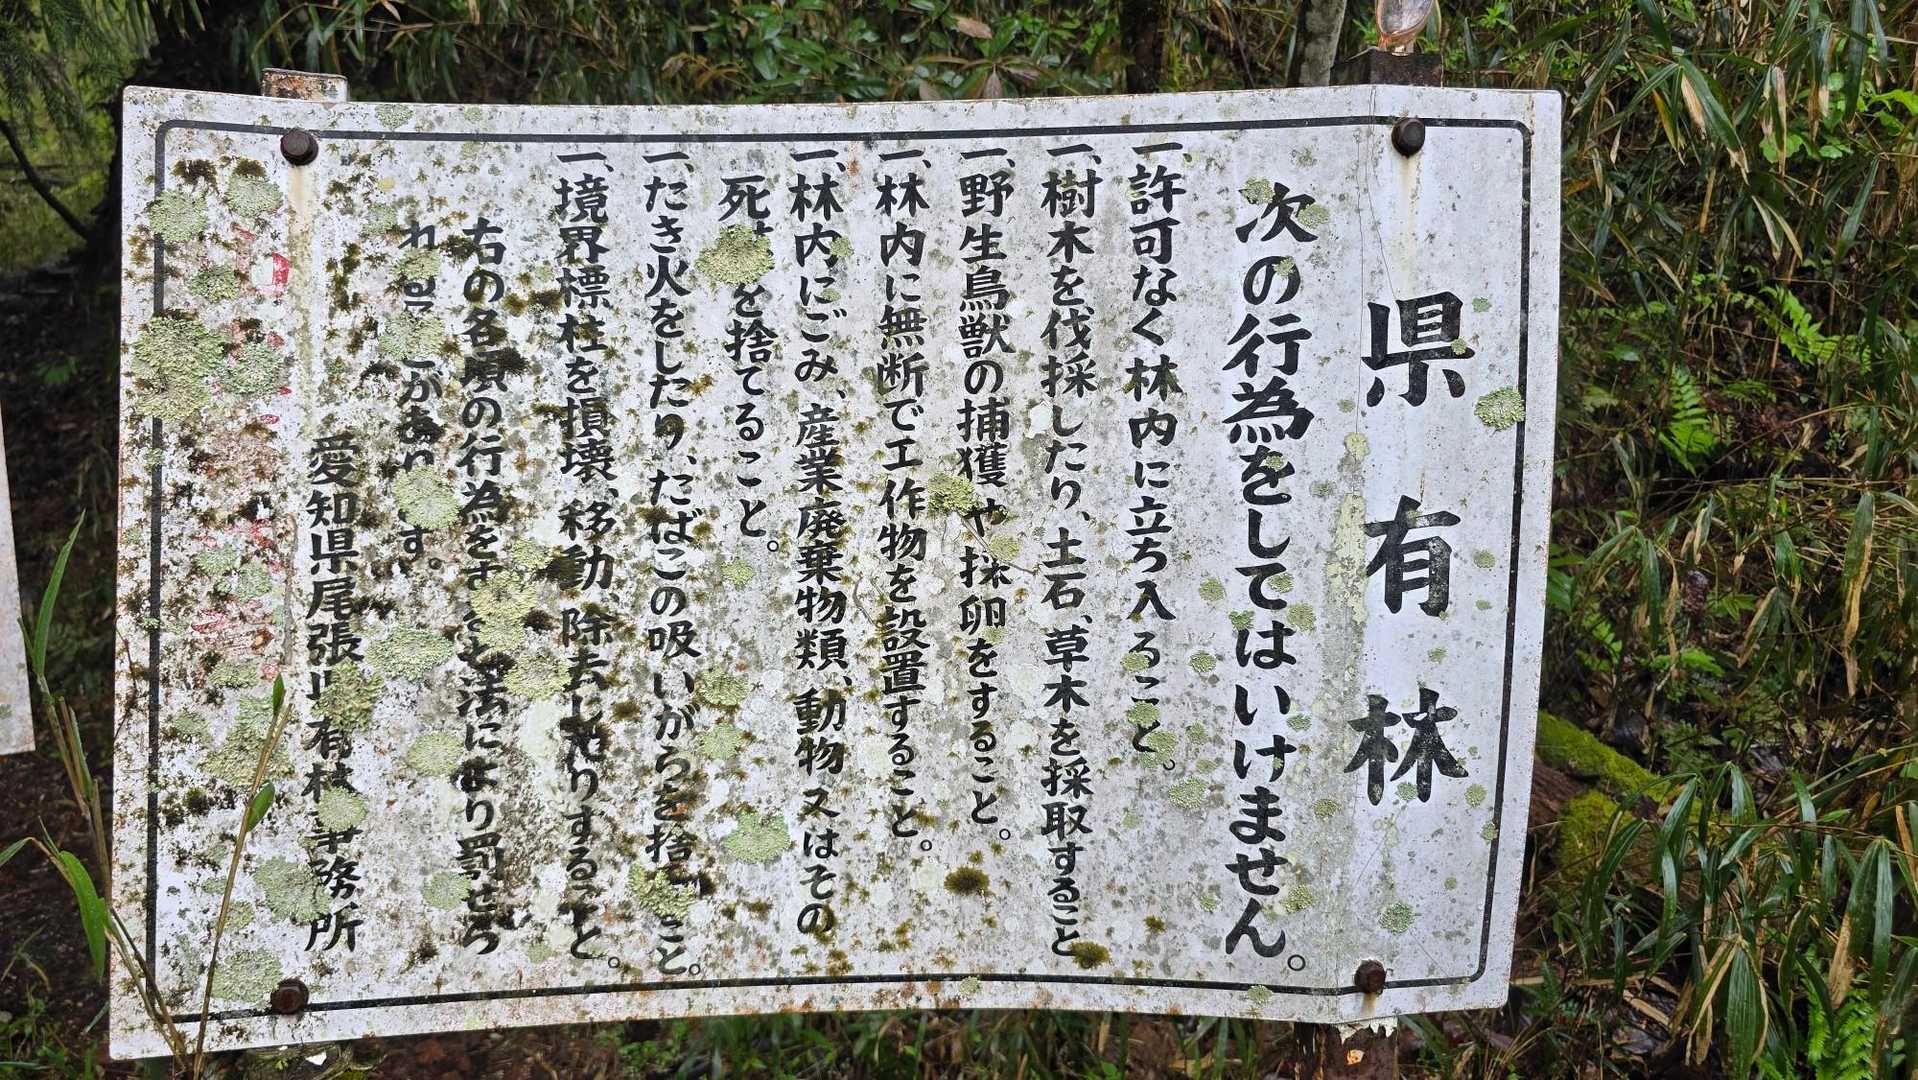 県有林
次の行為をしてはいけません。
一、許可なく林内に立ち入ること。
一、樹木を伐採したり、土石、草木を採取すること
一、野生鳥獣の捕獲や採卵をすること。
一、林内に無断で工作物を設置すること。
一、林内にごみ、産業廃棄物類、動物又はその
死を捨てること。
一、たき火をしたり、たばこの吸いがらを捨こと。
一、境界標柱を損壊、移動、除去したりすること。
右の各項の行為をすと法により罰せら
れることがあります。
愛知県尾張県有林事務所